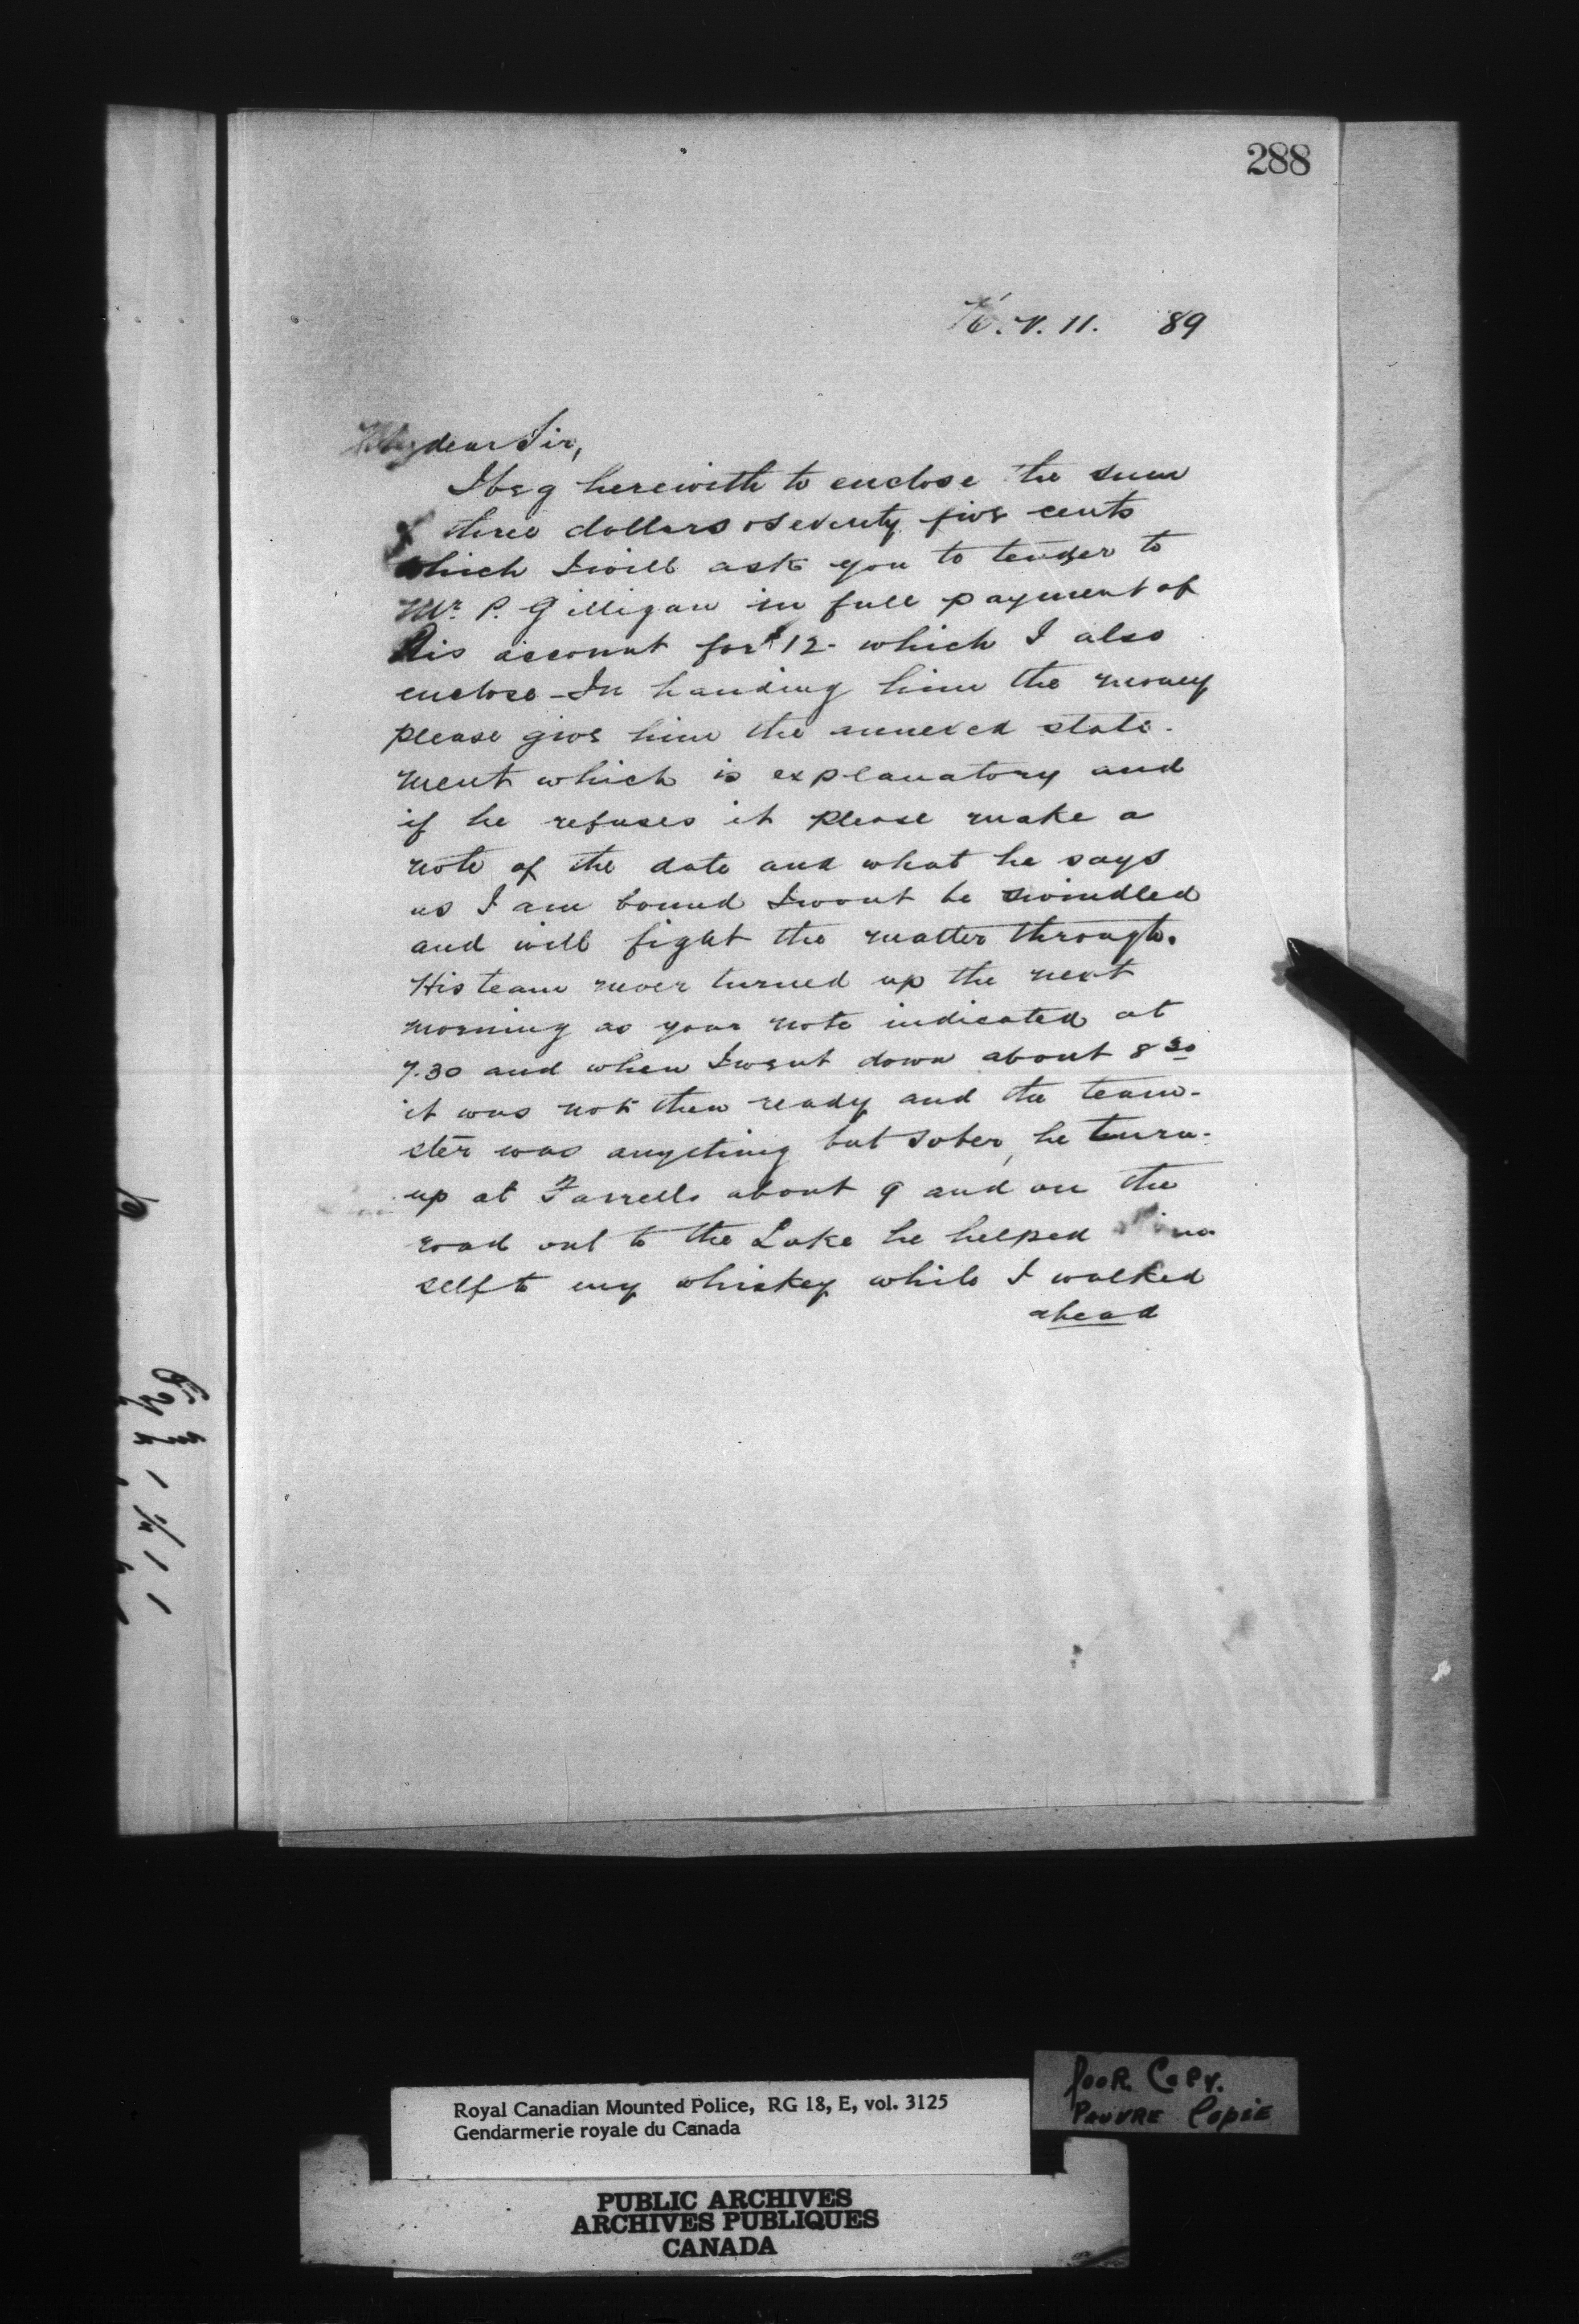 288
V. 11. 89
My dear Sir,
I beg herewith to enclose the sum
of three dollars & seventy five cents
which I will ask you to tender to
Mr. P. Gilligan in full payment of
his account for $12- which I also
enclose - In handing him the money
please give him the annexed state-
ment which is explanatory and
if he refuses it please make a
note of the date and what he says
as I am bound I wont be swindled
and will fight the matter through.
His team never turned up the next
morning as your note indicated at
7.30 and when I went down about 8 30
it was not then ready and the team-
ster was anything but sober, he turn-
up at Farrells about 9 and on the
road out to the Lake he helped him
self to my whiskey while I walked
ahead
Royal Canadian Mounted Police, RG 18, E, vol. 3125
Gendarmerie royale du Canada
Poor Copy.
Pauvre Copie
PUBLIC ARCHIVES
ARCHIVES PUBLIQUES
CANADA